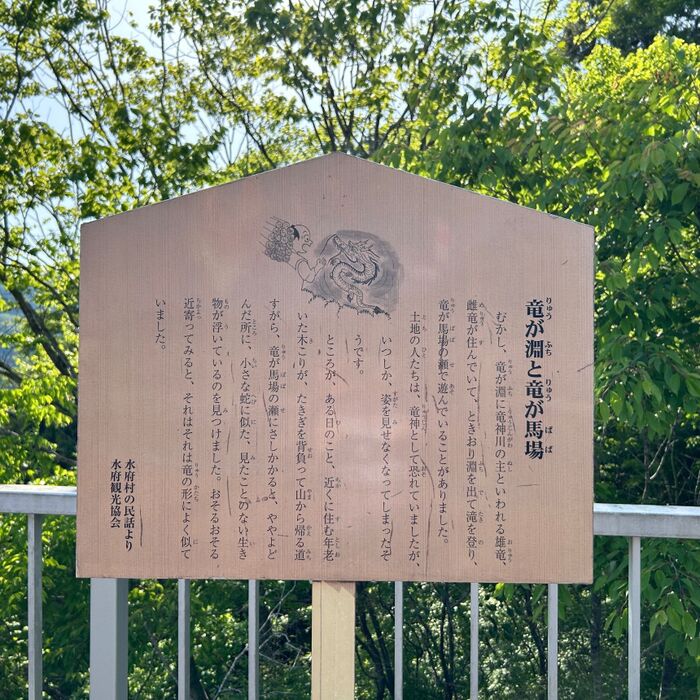 竜が淵と竜が馬場
むかし、竜が淵に竜神川の主といわれる雄竜、
雌竜が住んでいて、ときおり淵を出て滝を登り、
竜が馬場の瀬で遊んでいることがありました。
土地の人たちは、竜神として恐れていましたが、
いつしか、姿を見せなくなってしまったそ
うです。
ところが、ある日のこと、近くに住む年老
いた木こりが、たきぎを背負って山から帰る道
すがら、竜が馬場の瀬にさしかかると、ややよど
んだ所に、小さな蛇に似た、見たことのない生き
物が浮いているのを見つけました。おそるおそる
近寄ってみると、それはそれは竜の形によく似て
いました。
水府村の民話より
水府観光協会